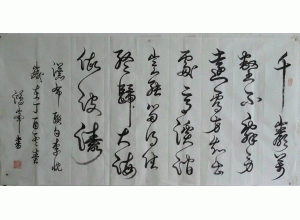 千巖萬
壑不辭勞
遠看方知出
處高溪澗
豈能留得住
終歸大海
作波濤
瀑布聯句李忱
歲在丁酉
書